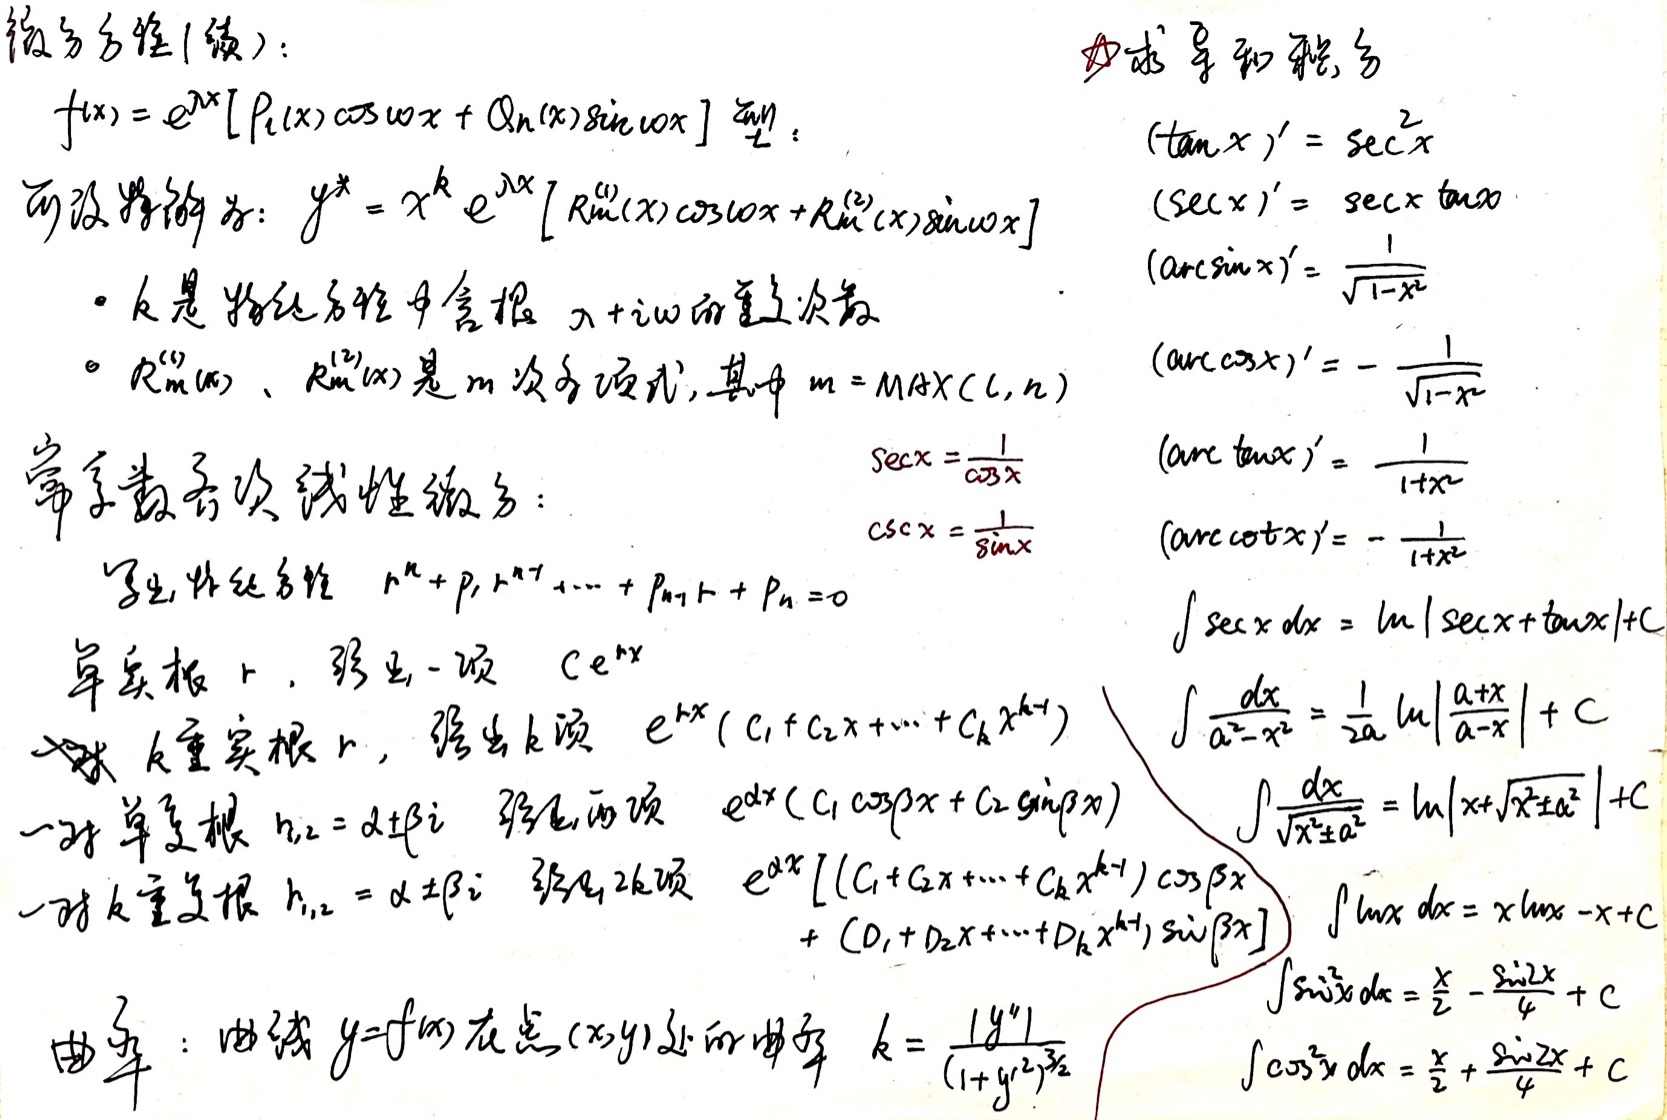 微分方程(续):
f(x) = e^{λx}[P_l(x)cosωx + Q_n(x)sinωx] 型:
可设特解为: y* = x^k e^{λx}[R_m^{(1)}(x)cosωx + R_m^{(2)}(x)sinωx]
• k是特征方程中含根 λ+iω的重复次数
• R_m^{(1)}(x)、R_m^{(2)}(x)是m次多项式,其中 m = MAX(l, n)
常系数齐次线性微分:
写出特征方程 r^n + p_1 r^{n-1} + ... + p_{n-1} r + p_n = 0
单实根 r, 给出一项 Ce^{rx}
k重实根 r, 给出k项 e^{rx}(C_1 + C_2x + ... + C_k x^{k-1})
一对单复根 r_{1,2} = α±βi 给出两项 e^{αx}(C_1 cosβx + C_2 sinβx)
一对k重复根 r_{1,2} = α±βi 给出2k项 e^{αx}[(C_1+C_2x+...+C_k x^{k-1})cosβx
+ (D_1+D_2x+...+D_k x^{k-1})sinβx]
曲率: 曲线 y=f(x)在点(x,y)处的曲率 k = |y''| / (1+y'^2)^{3/2}
secx = 1/cosx
cscx = 1/sinx
☆求导和积分
(tanx)' = sec^2x
(secx)' = secx tanx
(arcsinx)' = 1/√(1-x^2)
(arccosx)' = -1/√(1-x^2)
(arctanx)' = 1/(1+x^2)
(arccotx)' = -1/(1+x^2)
∫secx dx = ln|secx+tanx|+C
∫dx/(a^2-x^2) = 1/(2a) ln|(a+x)/(a-x)| + C
∫dx/√(x^2±a^2) = ln|x+√(x^2±a^2)|+C
∫lnx dx = xlnx - x + C
∫sin^2x dx = x/2 - sin2x/4 + C
∫cos^2x dx = x/2 + sin2x/4 + C